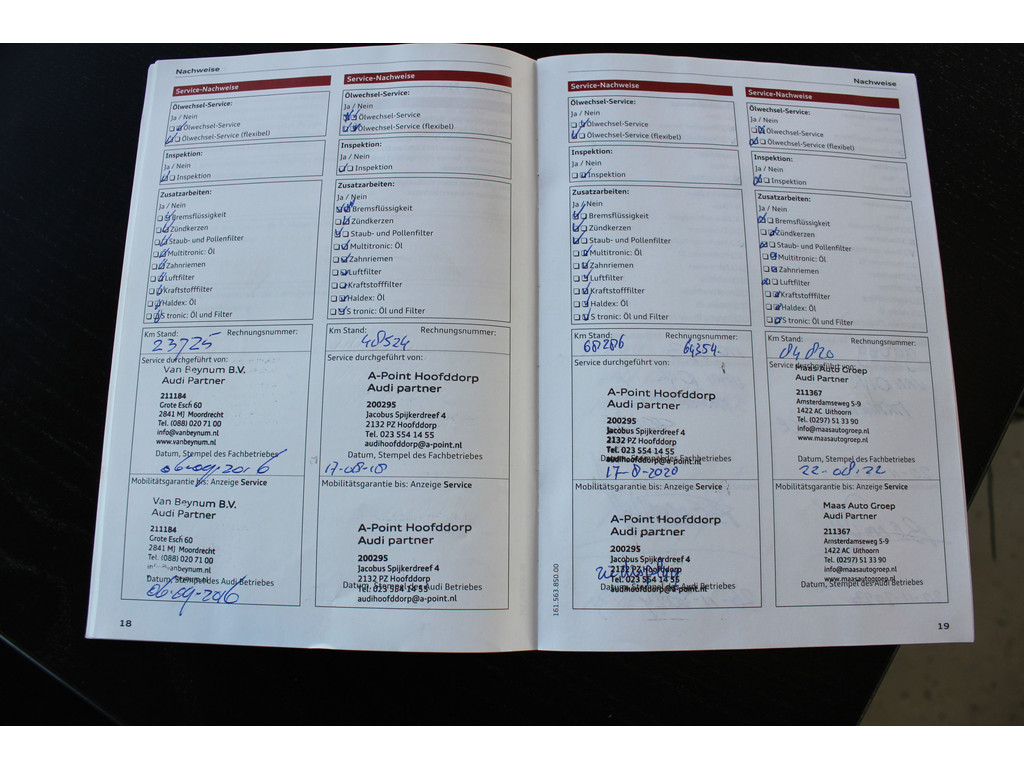 Nachweise
Service-Nachweise
Ölwechsel-Service:
Ja / Nein
Ölwechsel-Service
Ölwechsel-Service (flexibel)
Inspektion:
Ja / Nein
Inspektion
Zusatzarbeiten:
Ja / Nein
Bremsflüssigkeit
Zündkerzen
Staub- und Pollenfilter
Multitronic: Öl
Zahnriemen
Luftfilter
Kraftstofffilter
Haldex: Öl
S tronic: Öl und Filter
Km Stand: Rechnungsnummer:
23725
Service durchgeführt von:
Van Beynum B.V.
Audi Partner
211184
Grote Esch 60
2841 MJ Moordrecht
Tel. (088) 020 71 00
info@vanbeynum.nl
www.vanbeynum.nl
Datum, Stempel des Fachbetriebes
06-09-2016
Mobilitätsgarantie bis: Anzeige Service
Van Beynum B.V.
Audi Partner
211184
Grote Esch 60
2841 MJ Moordrecht
Tel. (088) 020 71 00
Datum, Stempel des Audi Betriebes
06-09-2016
18
Service-Nachweise
Ölwechsel-Service:
Ja / Nein
Ölwechsel-Service
Ölwechsel-Service (flexibel)
Inspektion:
Ja / Nein
Inspektion
Zusatzarbeiten:
Ja / Nein
Bremsflüssigkeit
Zündkerzen
Staub- und Pollenfilter
Multitronic: Öl
Zahnriemen
Luftfilter
Kraftstofffilter
Haldex: Öl
S tronic: Öl und Filter
Km Stand: Rechnungsnummer:
48524
Service durchgeführt von:
A-Point Hoofddorp
Audi partner
200295
Jacobus Spijkerdreef 4
2132 PZ Hoofddorp
Tel. 023 554 14 55
audihoofddorp@a-point.nl
Datum, Stempel des Fachbetriebes
17-08-18
Mobilitätsgarantie bis: Anzeige Service
A-Point Hoofddorp
Audi partner
200295
Jacobus Spijkerdreef 4
2132 PZ Hoofddorp
Datum, Stempel des Audi Betriebes
Tel. 023 554 14 55
audihoofddorp@a-point.nl
Service-Nachweise
Ölwechsel-Service:
Ja / Nein
Ölwechsel-Service
Ölwechsel-Service (flexibel)
Inspektion:
Ja / Nein
Inspektion
Zusatzarbeiten:
Ja / Nein
Bremsflüssigkeit
Zündkerzen
Staub- und Pollenfilter
Multitronic: Öl
Zahnriemen
Luftfilter
Kraftstofffilter
Haldex: Öl
S tronic: Öl und Filter
Km Stand: Rechnungsnummer:
68286 64354.
Service durchgeführt von:
A-Point Hoofddorp
Audi partner
200295
Jacobus Spijkerdreef 4
2132 PZ Hoofddorp
Tel. 023 554 14 55
Datum, Stempel des Fachbetriebes
audihoofddorp@a-point.nl
17-8-2020
Mobilitätsgarantie bis: Anzeige Service
A-Point Hoofddorp
Audi partner
200295
Jacobus Spijkerdreef 4
2132 PZ Hoofddorp
Tel. 023 554 14 55
Datum, Stempel des Audi Betriebes
audihoofddorp@a-point.nl
161.563.850.00
Nachweise
Service-Nachweise
Ölwechsel-Service:
Ja / Nein
Ölwechsel-Service
Ölwechsel-Service (flexibel)
Inspektion:
Ja / Nein
Inspektion
Zusatzarbeiten:
Ja / Nein
Bremsflüssigkeit
Zündkerzen
Staub- und Pollenfilter
Multitronic: Öl
Zahnriemen
Luftfilter
Kraftstofffilter
Haldex: Öl
S tronic: Öl und Filter
Km Stand: Rechnungsnummer:
84820
Service durchgeführt von:
Maas Auto Groep
Audi Partner
211367
Amsterdamseweg 5-9
1422 AC Uithoorn
Tel. (0297) 51 33 90
info@maasautogroep.nl
www.maasautogroep.nl
Datum, Stempel des Fachbetriebes
22-08-22
Mobilitätsgarantie bis: Anzeige Service
Maas Auto Groep
Audi Partner
211367
Amsterdamseweg 5-9
1422 AC Uithoorn
Tel. (0297) 51 33 90
info@maasautogroep.nl
www.maasautogroep.nl
Datum, Stempel des Audi Betriebes
19